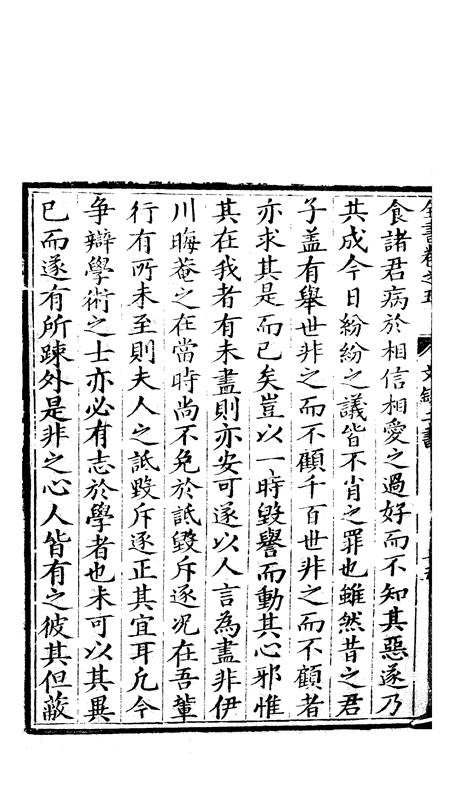 食諸君病於相信相愛之過好而不知其惡遂乃
共成今日紛紛之議皆不肖之罪也雖然昔之君
子盖有舉世非之而不顧千百世非之而不顧者
亦求其是而已矣豈以一時毀譽而動其心邪惟
其在我者有未盡則亦安可遂以人言為盡非伊
川晦菴之在當時尚不免於詆毀斥逐况在吾輩
行有所未至則夫人之詆毀斥逐正其宜耳凢今
争辯學術之士亦必有志於學者也未可以其異
已而遂有所踈外是非之心人皆有之彼其但蔽